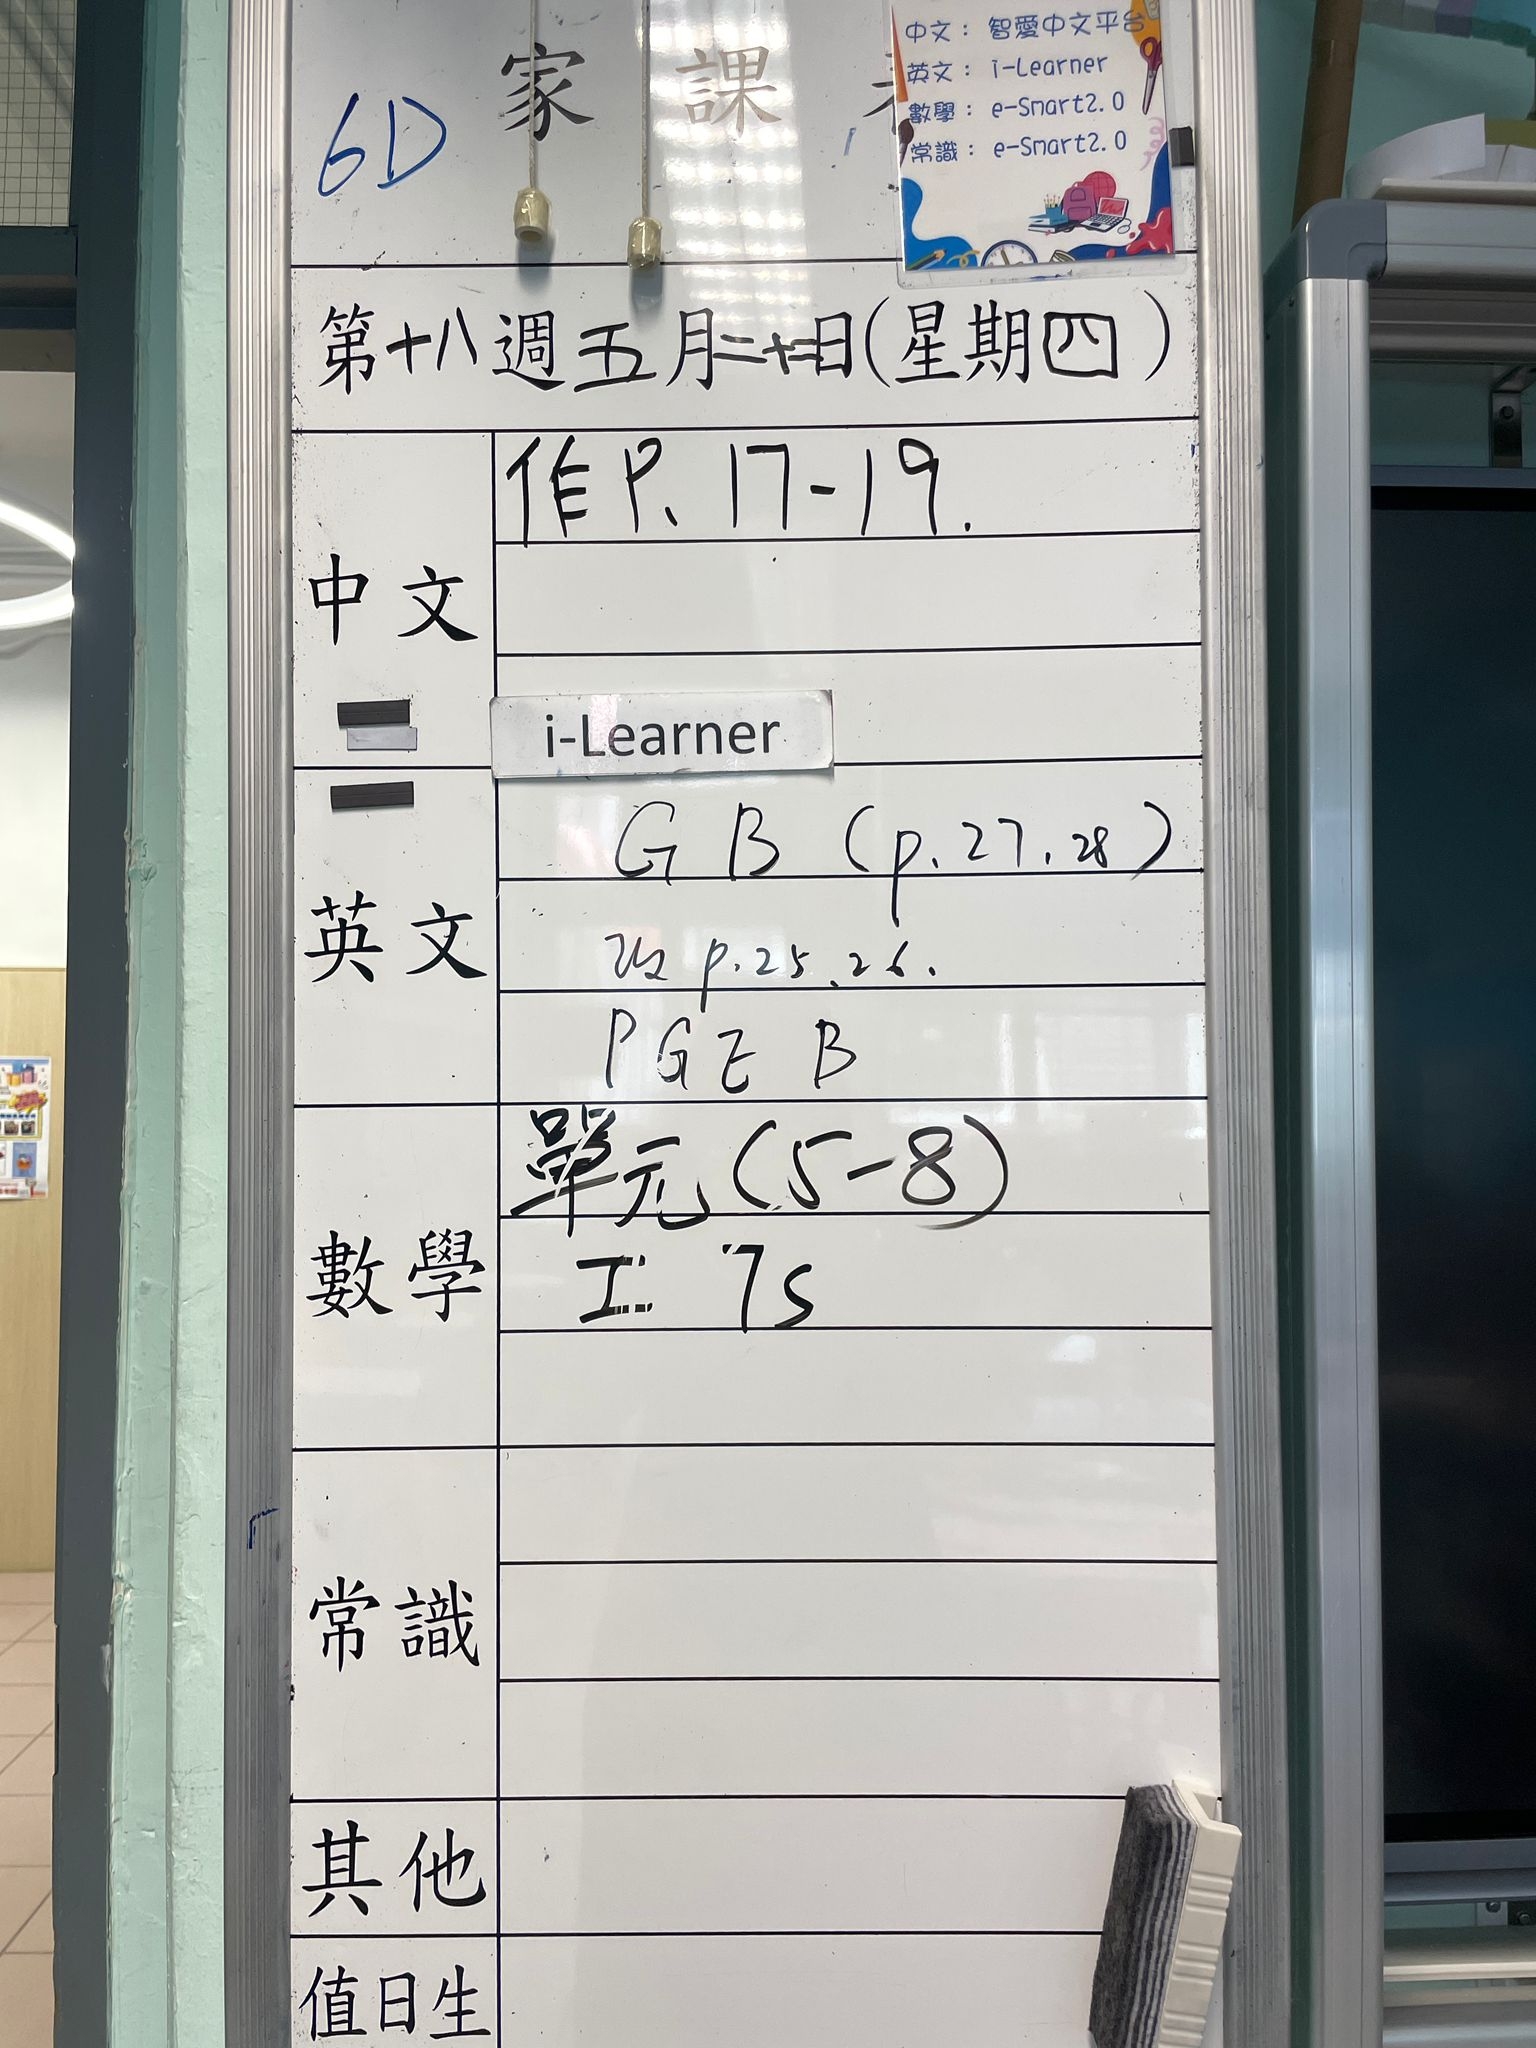 6D
家 課
中文： 智愛中文平台
英文： i-Learner
數學： e-Smart2.0
常識： e-Smart2.0
第十八週五月二十二日(星期四)
中文
作P. 17-19.
i-Learner
英文
G B (p.27, 28)
改 p.25, 26.
PGE B
數學
單元(5-8)
工 7s
常識
其他
值日生